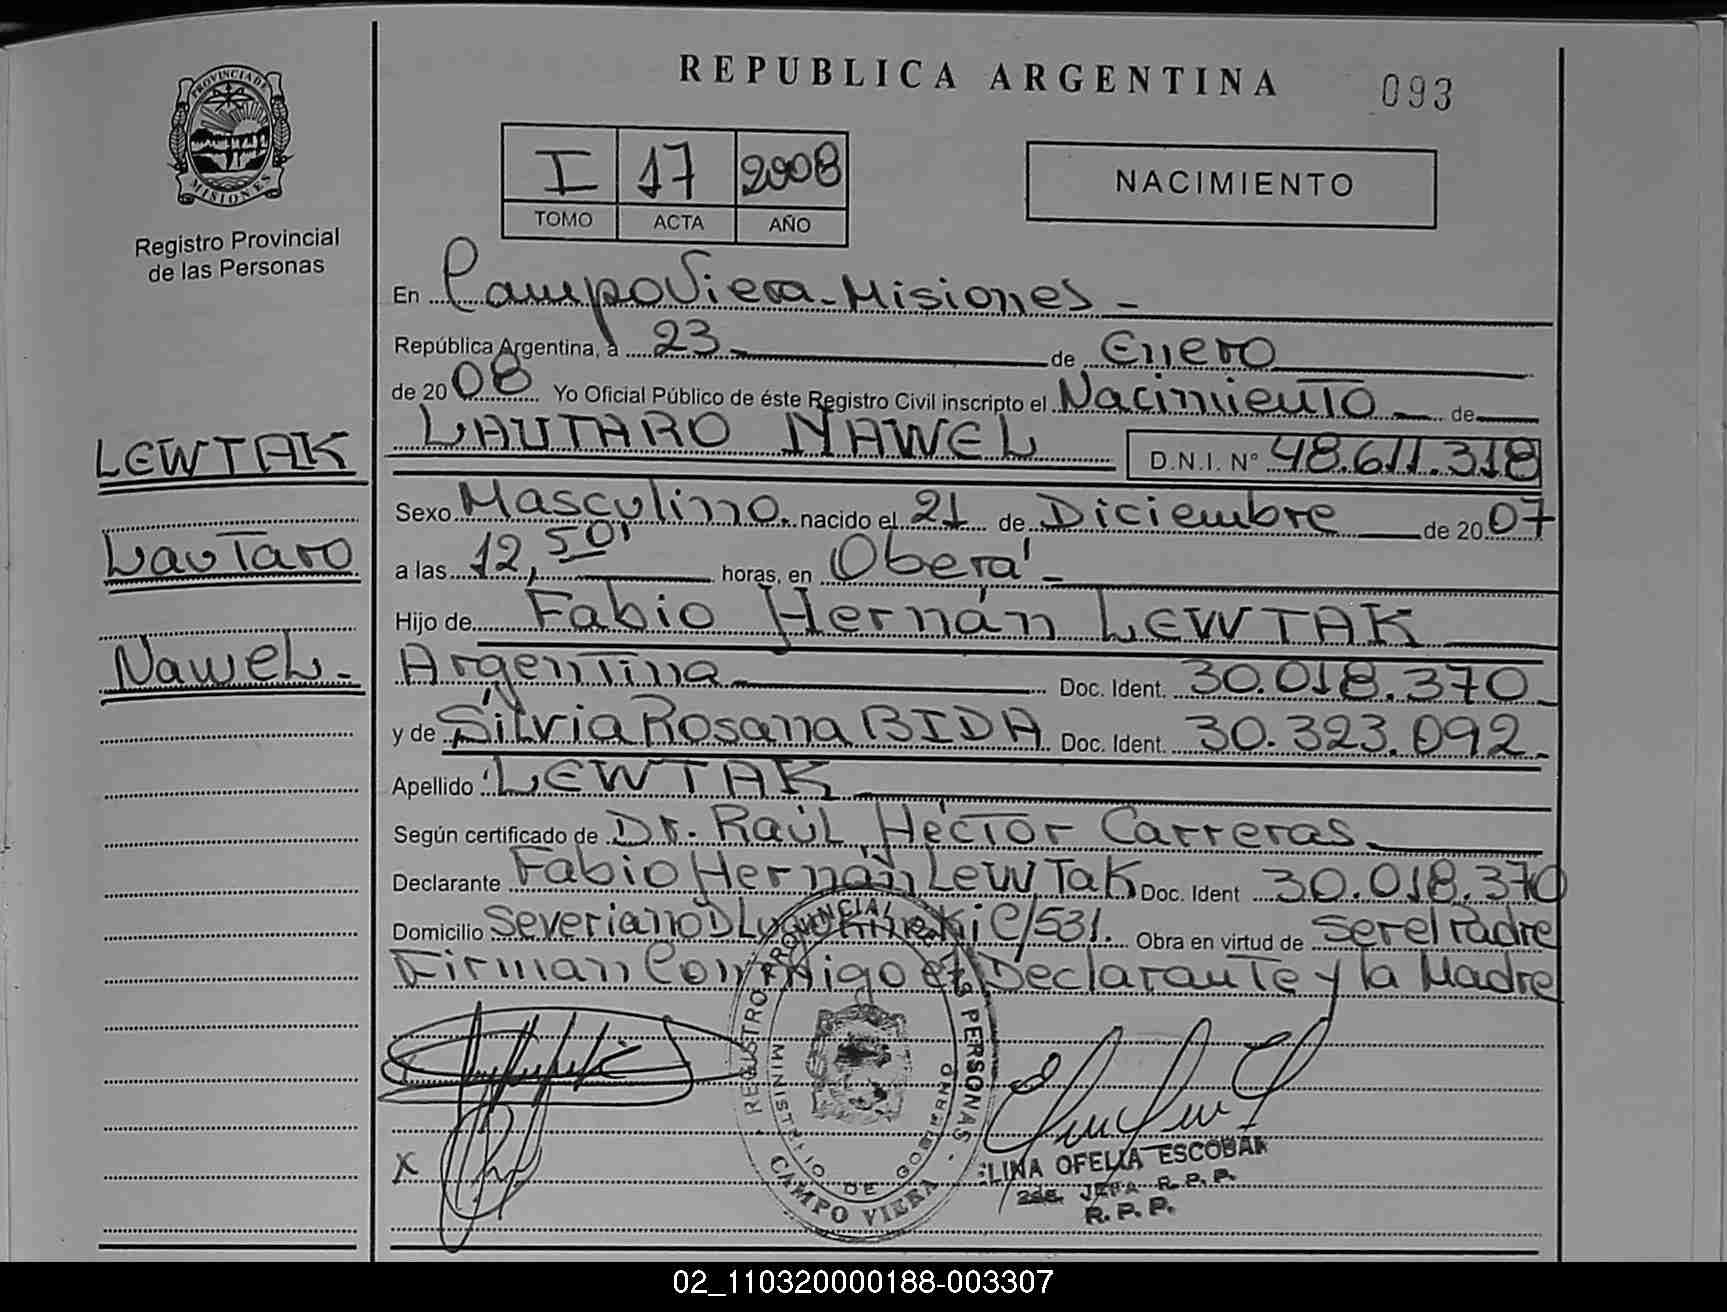 REPUBLICA ARGENTINA
093
PROVINCIA DE MISIONES
Registro Provincial
de las Personas
I 17 2008
TOMO ACTA AÑO
NACIMIENTO
En Campo Viera - Misiones -
República Argentina, a 23 de Enero
de 2008 Yo Oficial Público de éste Registro Civil inscripto el Nacimiento de
LAUTARO NAWEL D.N.I. N° 48.611.318
LEWTAK
Lautaro
Nawel -
Sexo Masculino. nacido el 21 de Diciembre de 2007
a las 12,50' horas, en Oberá -
Hijo de Fabio Hernán LEWTAK
Argentina Doc. Ident. 30.018.370
y de Silvia Rosana BIDA Doc. Ident. 30.323.092.-
Apellido: LEWTAK
Según certificado de Dr. Raúl Héctor Carreras
Declarante Fabio Hernán LewTak Doc. Ident 30.018.370
Domicilio Severiano C/531. Obra en virtud de ser el Padre
Firman Conmigo el Declarante y la Madre
REGISTRO PROVINCIAL PERSONAS
MINISTERIO DE GOBIERNO
CAMPO VIERA
X
ELINA OFELIA ESCOBAR
2da. JEFA R.P.P.
R.P.P.
02_110320000188-003307